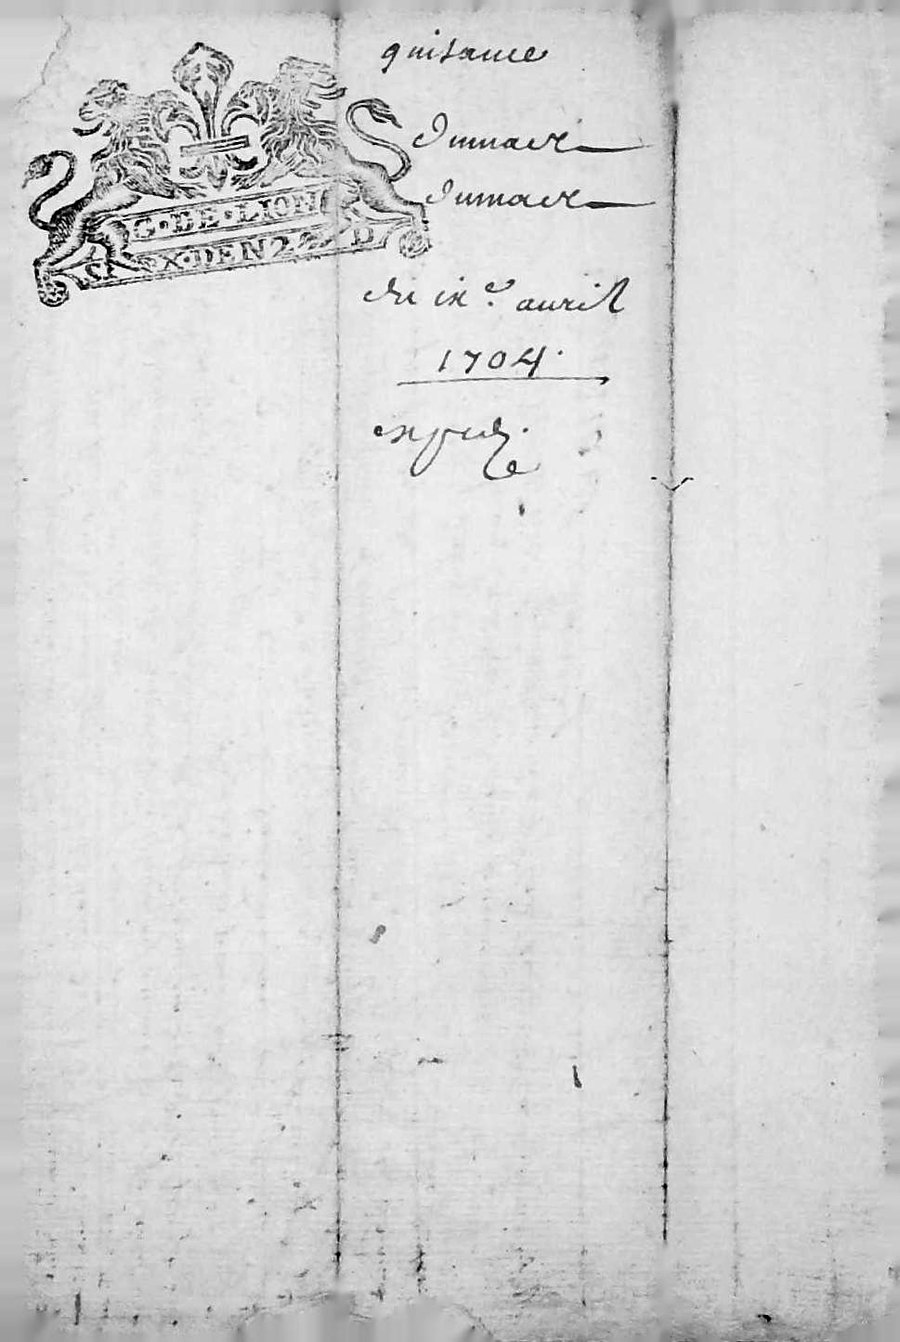 G·DE·LION
SIX·DEN 2 D
quitance
Dumacr
dumacr
du ix.e auril
1704.
expedi.